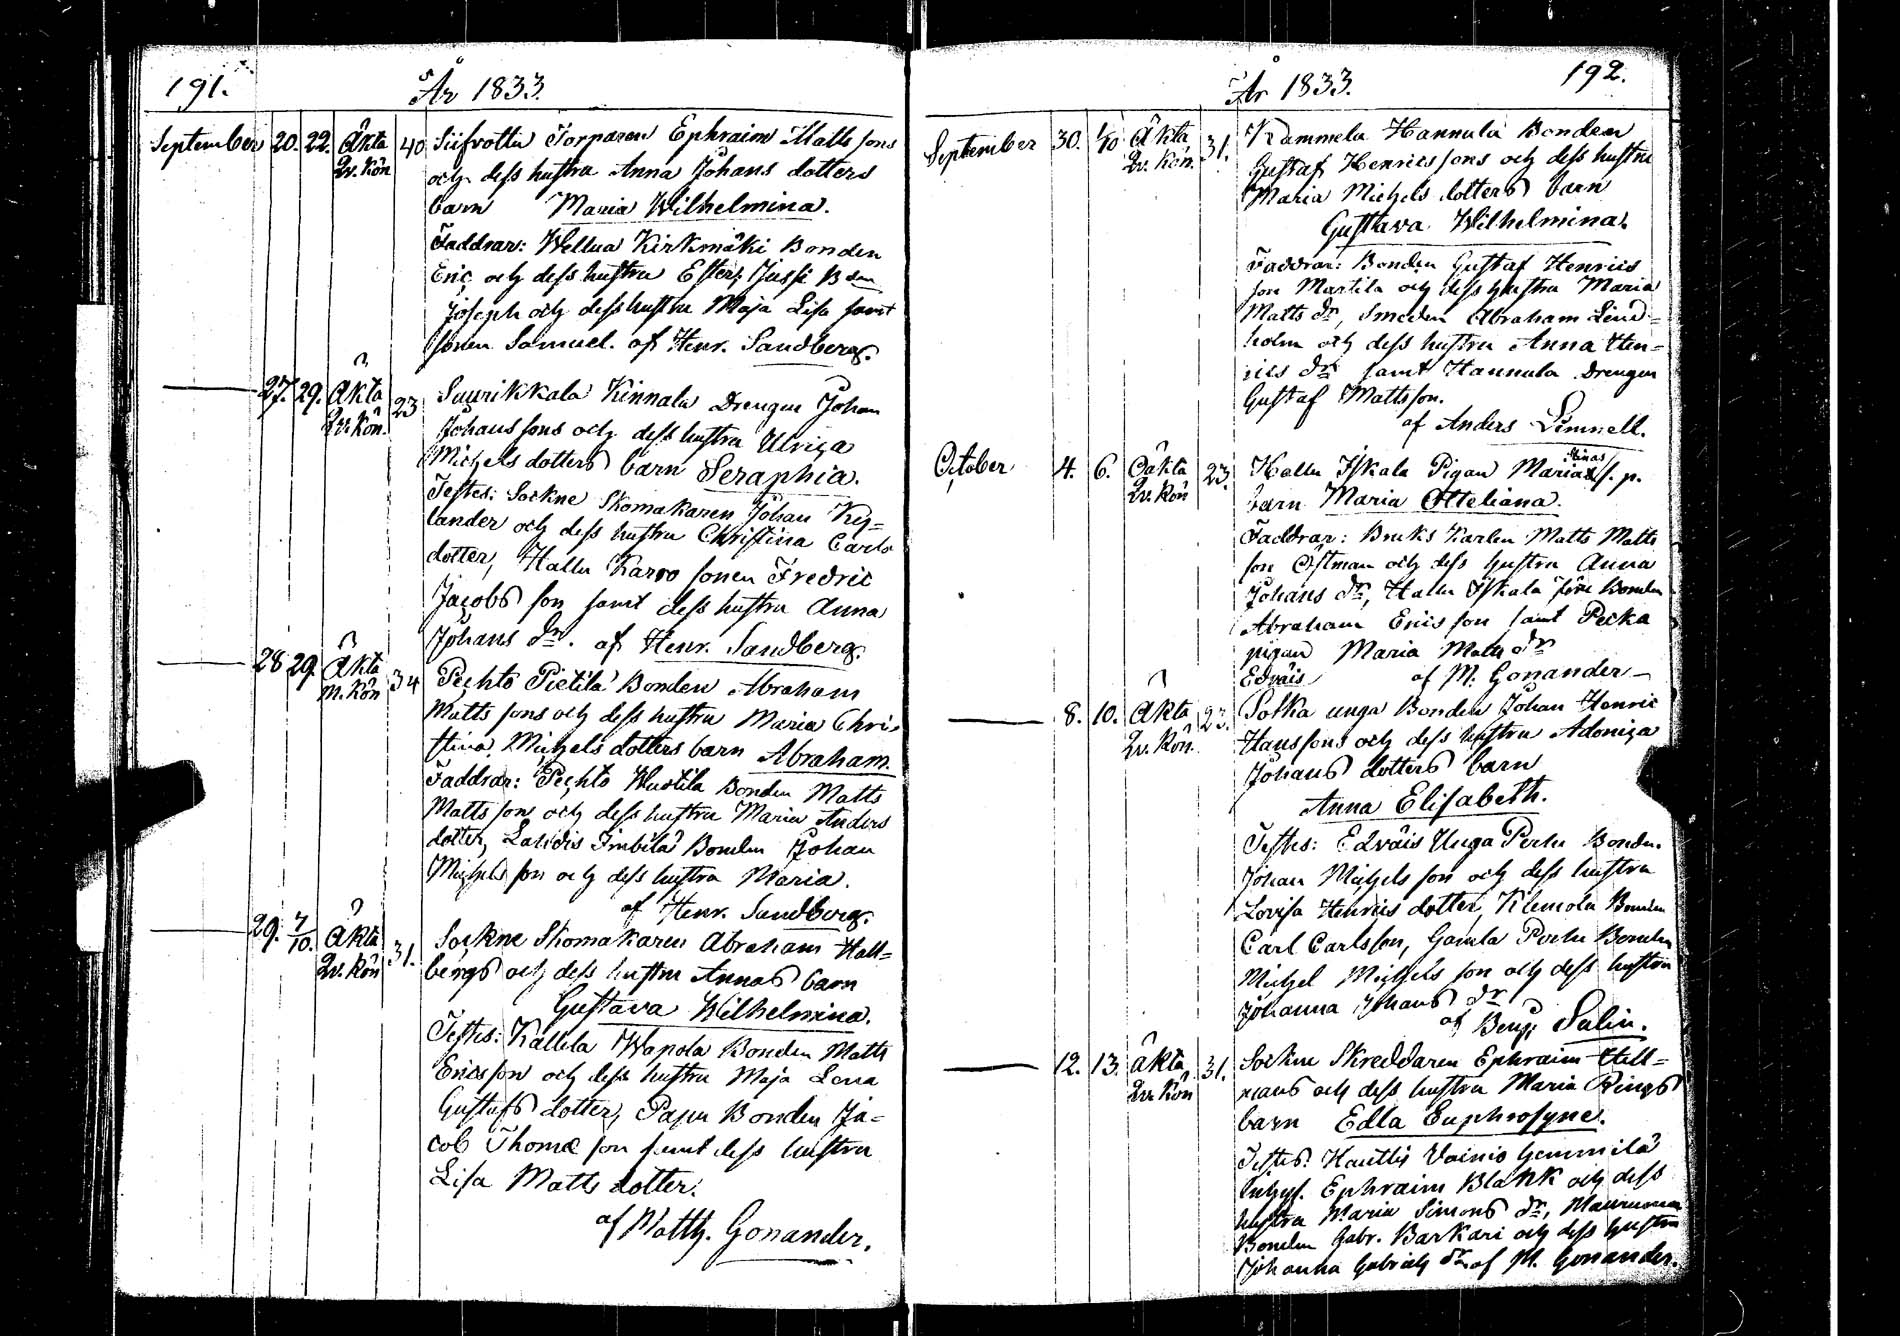 191.
År 1833.
September 20. 22. Äkta 40 Siifrottu Torparen Ephraim Matts sons
Qv. Kön och dess hustru Anna Johans dotters
barn Maria Wilhelmina.
Faddrar: Wellua Kirkmäki Bonden
Eric och dess hustru Ester, Jussi Bon
Joseph och dess hustru Maja Lisa samt
sonen Samuel. af Henr. Sandberg.
27. 29. Äkta 23 Suurikkala Kinnala Drengen Johan
Qv. Kön. Johans sons och dess hustru Ulrica
Michels dotters barn Seraphia.
Testes: Sockne Skomakaren Johan Ky=
lander och dess hustru Christina Carls
dotter, Hallu Karro sonen Fredric
Jacobs son samt dess hustru Anna
Johans dr. af Henr. Sandberg.
28 29. Äkta 34 Pechto Pietilä Bonden Abraham
M. Kön Matts sons och dess hustru Maria Chri-
stina Michels dotters barn Abraham.
Faddrar: Pechto Bonden Matts
Matts son och dess hustru Maria Anders
dotter, Lahdis Imbilä Bonden Johan
Michels son och dess hustru Maria.
af Henr. Sandberg.
29. 7/10. Äkta 31. Sockne Skomakaren Abraham Hall=
Qv. Kön bergs och dess hustru Annas barn
Gustava Wilhelmina.
Testes: Kallila Wapola Bonden Matts
Ericsson och dess hustru Maja Lena
Gustafs dotter, Papu Bonden Ja=
cob Thomæ son samt dess hustru
Lisa Matts dotter.
af Matth. Gonander.
192.
År 1833.
September 30. 1/10 Äkta 31. Kammela Hannula Bonden
Qv. Kön. Gustaf Henrics sons och dess hustru
Maria Michels dotters barn
Gustava Wilhelmina.
Faddrar: Bonden Gustaf Henrics
son Martila och dess hustru Maria
Matts dr, Smeden Abraham Lind=
holm och dess hustru Anna Hen=
rics dr samt Hannula Drengen
Gustaf Mattsson.
af Anders Limnell.
October 4. 6. Oäkta 23. Hallu Iskala Pigan Maria Stinas s. p.
Qv. Kön barn Maria Otteliana.
Faddrar: Bruks Karlen Matts Matts
son Östman och dess hustru Anna
Johans dr, Hallu Iskala före Bonden
Abraham Erics son samt Pecka
pigan Maria Matts dr
Edväis af M. Gonander
8. 10. Äkta 23. Sotka unga Bonden Johan Henric
Qv. Kön. Hanssons och dess hustru Adoniga
Johans dotters barn
Anna Elisabeth.
Testes: Edväis Unga Perhu Bonden
Johan Michels son och dess hustru
Lovisa Henrics dotter, Klemola Bonden
Carl Carlsson, Gamla Perhu Bonden
Michel Michels son och dess hustru
Johanna Johans dr
af Benj. Salin.
12. 13. Äkta 31. Sockne Skreddaren Ephraim Hell=
Qv. Kön mans och dess hustru Maria Rings
barn Edla Euphrosyne.
Testes: Hautlis Vainio Gammila
Inhys. Ephraim Blakk och dess
hustru Maria Simons dr,
Bonden Gabr. Barkari och dess hustru
Johanna Gabriels dr af M. Gonander.